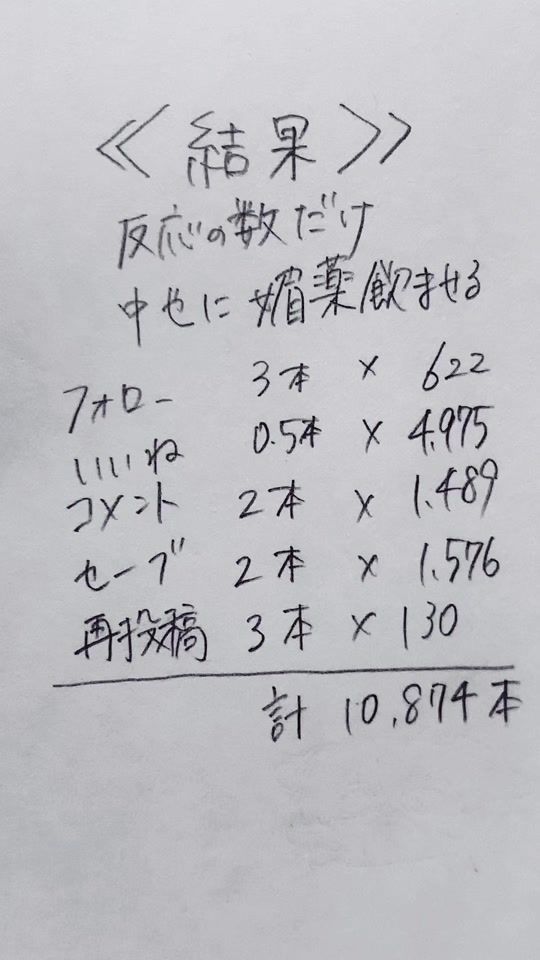 ≪結果≫
反応の数だけ
中也に媚薬飲ませる
フォロー 3本 × 622
いいね 0.5本 × 4,975
コメント 2本 × 1,489
セーブ 2本 × 1,576
再投稿 3本 × 130
計 10,874本